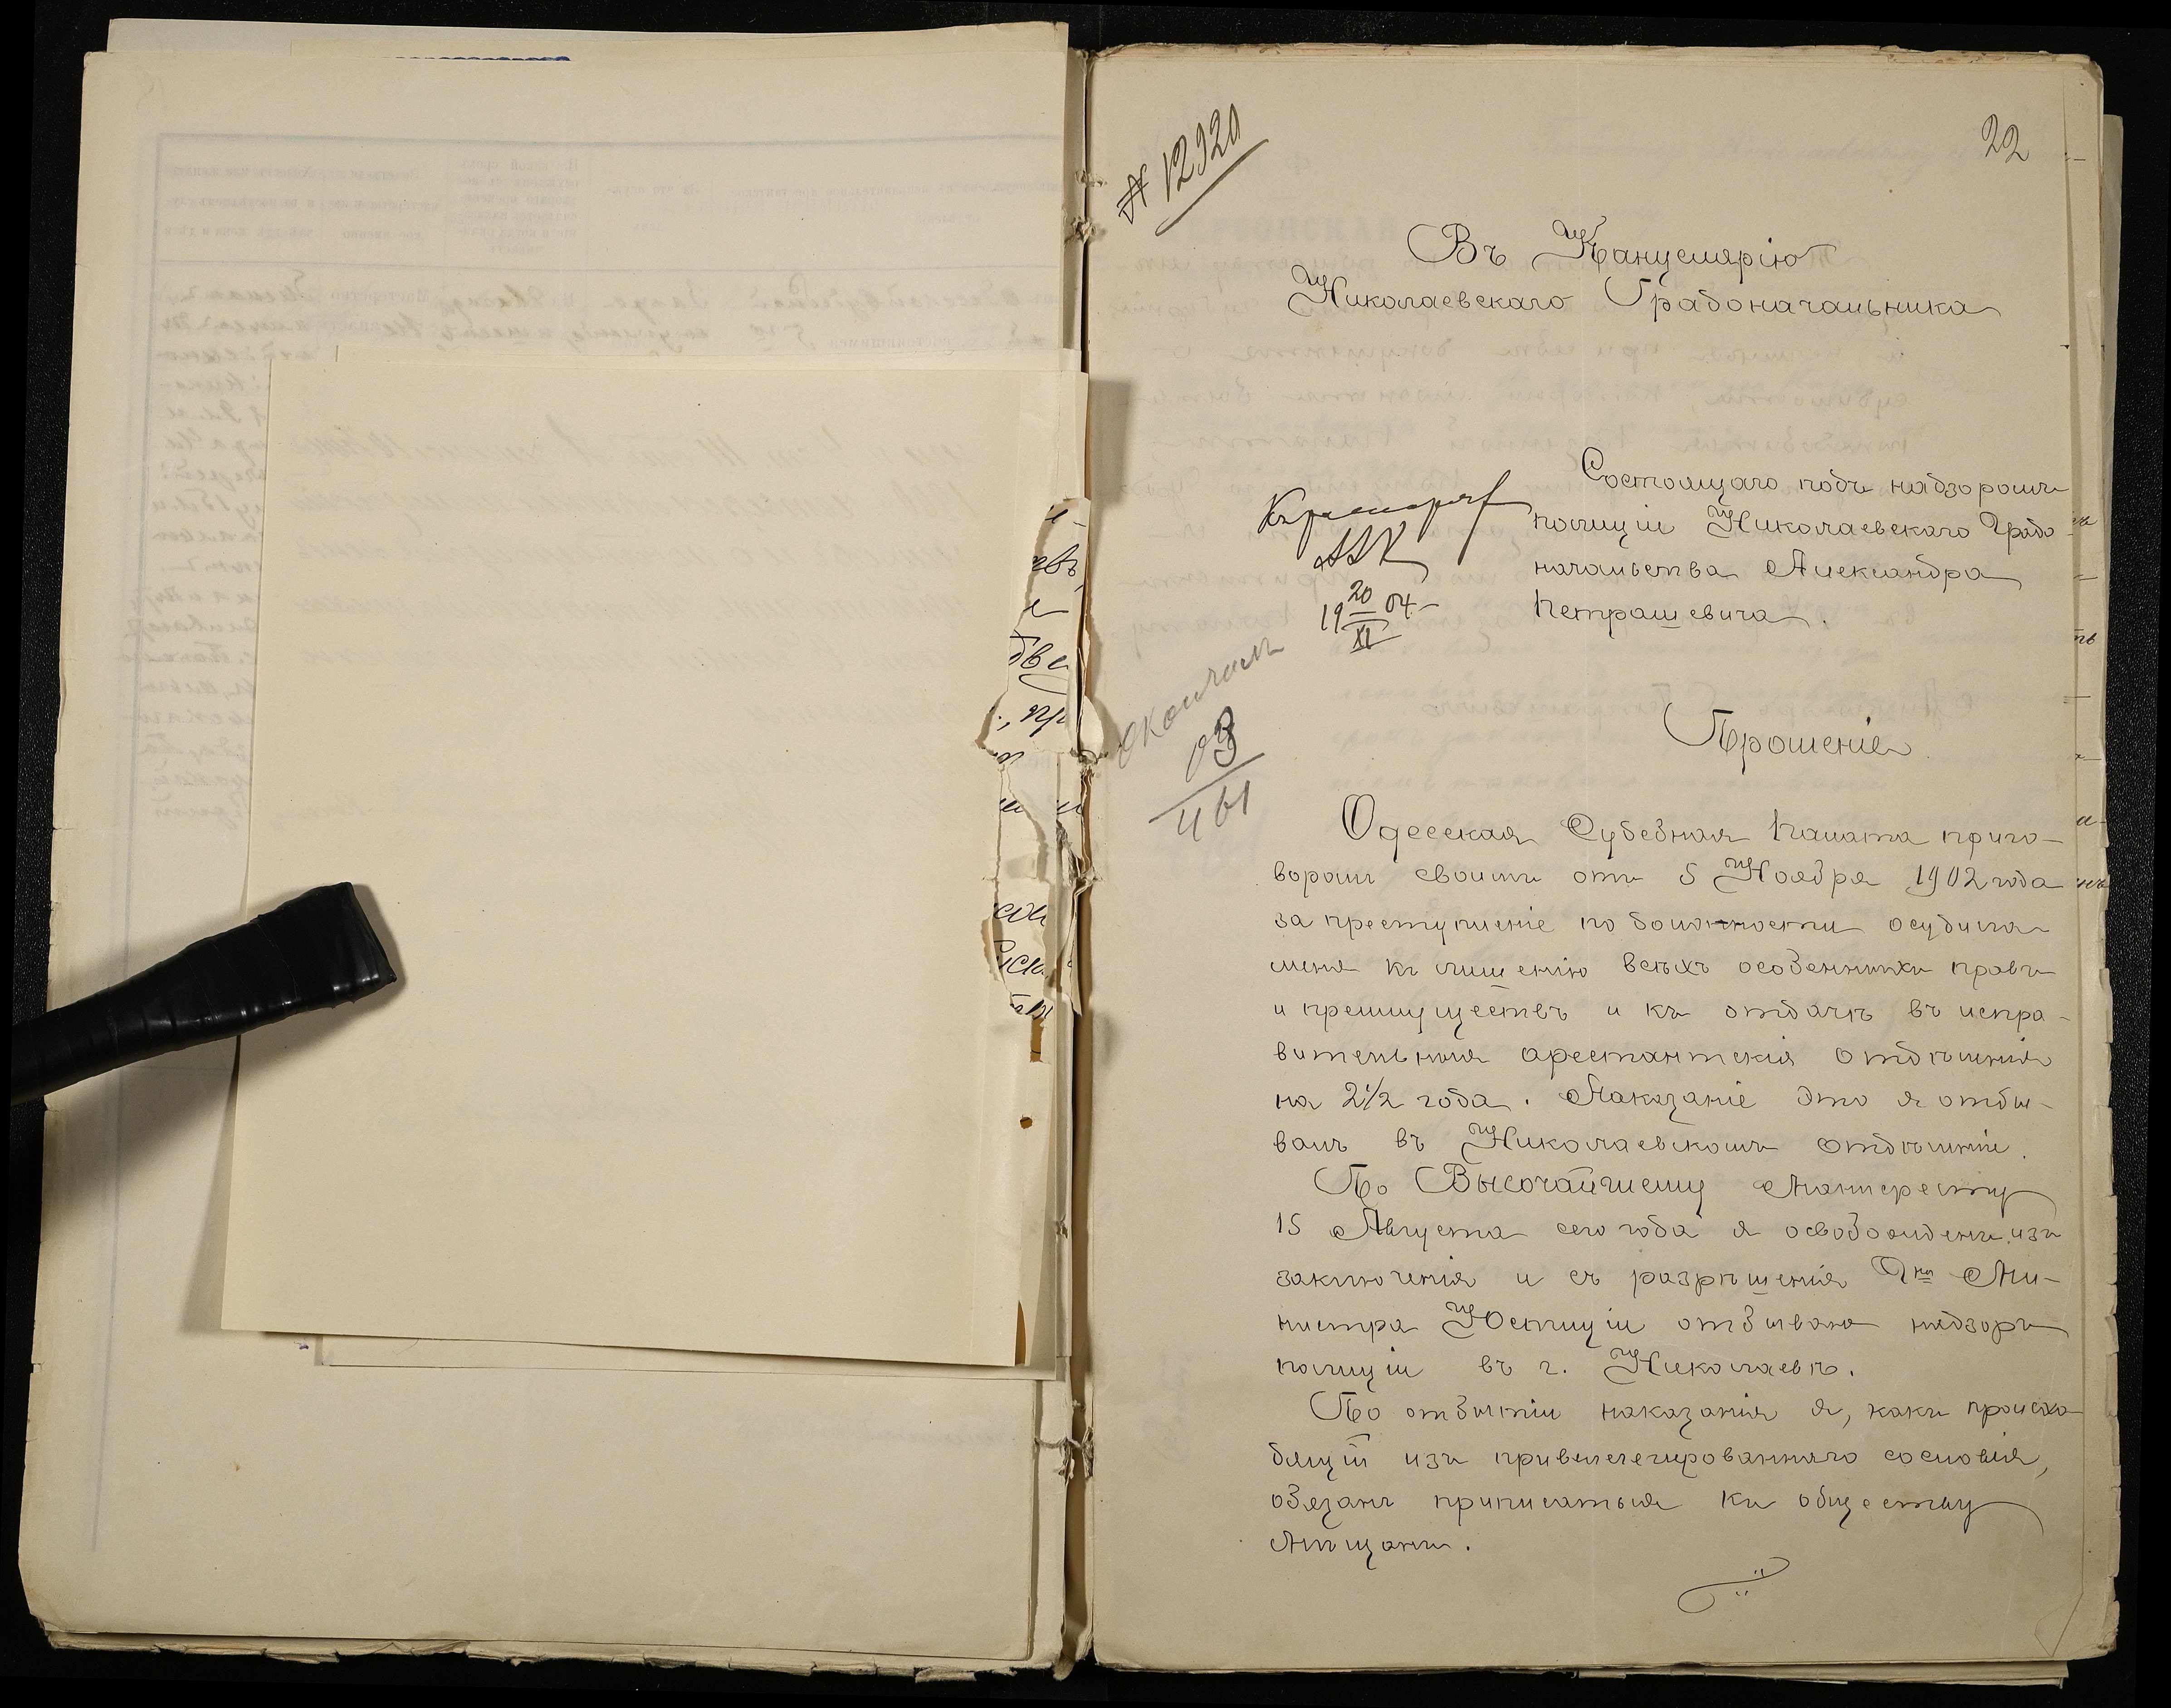 № 12920
22
Въ Канцелярію
Николаевскаго Градоначальника
Состоящаго подъ надзоромъ
полиціи Николаевскаго Градо
начальства Александра
Петрашевича.
20
19 04
XI
03
461
Прошеніе
Одесская Судебная Палата приго-
воромъ своимъ отъ 5 Ноября 1902 года
за преступленіе по должности осудила
меня къ лишенію всѣхъ особенныхъ правъ
и преимуществъ и къ отдачѣ въ испра-
вительныя арестантскія отдѣленія
на 2 1/2 года. Наказаніе это я отбы-
валъ въ Николаевскомъ отдѣленіи.
По Высочайшему Манифесту
15 Августа сего года я освобожденъ изъ
заключенія и съ разрѣшенія Гна Ми-
нистра Юстиціи отбываю надзоръ
полиціи въ г. Николаевѣ.
По отбытіи наказанія я, какъ происхо
дящій изъ привилегированнаго сословія,
обязанъ приписаться къ обществу
Мѣщанъ.